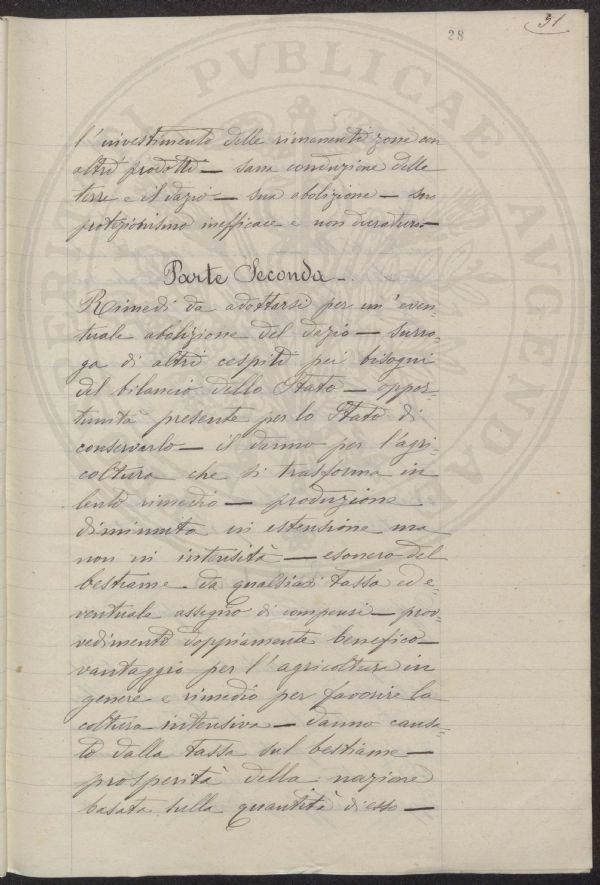 31
28
l'investimento delle rimanenti zone con
altri prodotti — sana conduzione delle
terre e il dazio — sua abolizione — suo
protezionismo inefficace e non duraturo —
Parte Seconda —
Rimedi da adottarsi per un'even-
tuale abolizione del dazio — surro-
ga di altri cespiti pei bisogni
del bilancio dello Stato — oppor-
tunità presente per lo Stato di
conservarlo — il danno per l'agri-
coltura che si trasforma in
lento rimedio — produzione
diminuita in estensione ma
non in intensità — esonero del
bestiame da qualsiasi tassa ed e-
ventuale assegno di compensi — prov-
vedimento doppiamente benefico —
vantaggio per l'agricoltura in
genere e rimedio per favorire la
coltura intensiva — danno causa-
to dalla tassa sul bestiame —
prosperità della nazione
basata sulla quantità di esso —
PVBLICAE
AVGENDAE